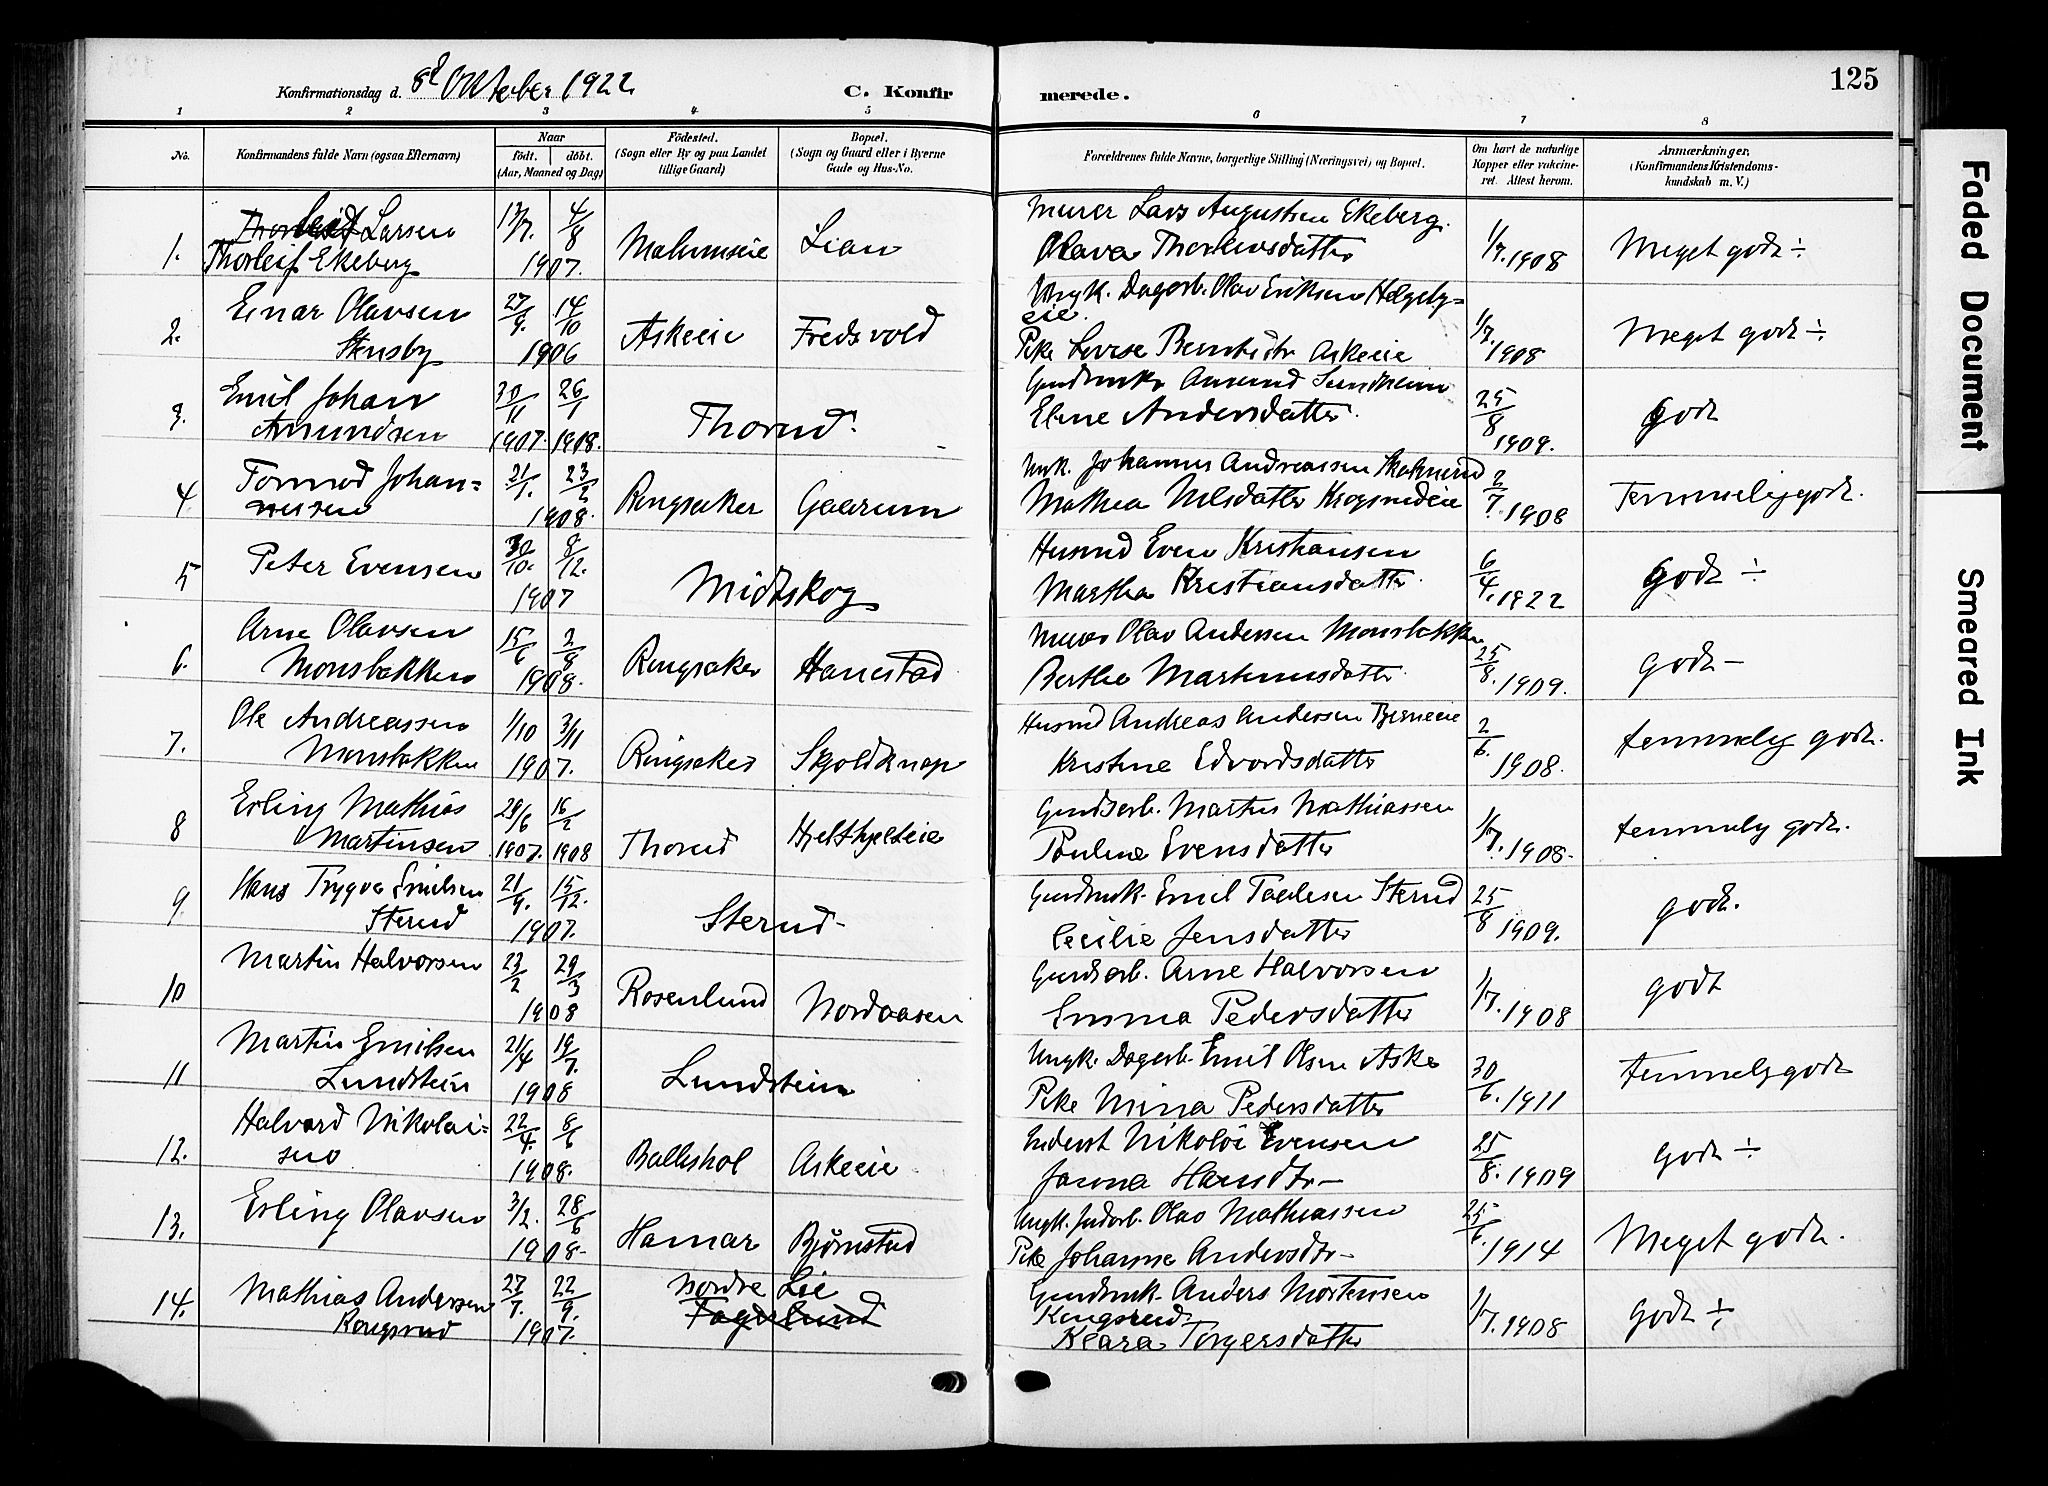 Konfirmationsdag d. 8de Oktober 1922
C. Konfirmerede.
125
1 2 3 4 5 6 7 8
No.
Konfirmandens fulde Navn (ogsaa Efternavn)
Naar
født. døbt.
(Aar, Maaned og Dag)
Fødested.
(Sogn eller By og paa Landet tillige Gaard)
Bopæl.
(Sogn og Gaard eller i Byerne Gade og Hus-No.
Forældrenes fulde Navne, borgerlige Stilling (Næringsvei) og Bopæl.
Om havt de naturlige Kopper eller vakcineret. Attest herom.
Anmærkninger,
(Konfirmandens Kristendomskundskab m. V.)
1. Larsen Thorleif Ekeberg 17/7. 4/8 1907. Malumseie Lian
Murer Lars Augustsen Ekeberg. Olava Thorkersdatter 1/7. 1908 Meget godt ÷
2. Einar Olavsen Stensby 27/9. 14/10 1906 Askeeie Fredsvold
Ungk. Dagarb. Olav Eriksen Helgebyeie. Pike Lovise Berntsdtr Askeeie 1/7. 1908 Meget godt ÷
3. Emil Johan Amundsen 30/11 1907. 26/1 1908. Thorud.
Gaardbruker Amund Sundheim Eline Andersdatter. 25/8 1909. godt
4. Tormod Johannesen 21/1. 23/2 1908. Ringsaker Gaarum
Ungk. Johannes Andreassen Mathea Nilsdatter Krogsrudeie 2/7. 1908 Temmelig godt.
5 Peter Evensen 30/10. 8/12. 1907 Midtskog
Husmd Even Kristiansen Martha Kristiansdatter. 6/4. 1922 godt ÷
6. Arne Olavsen Monsbakken 15/6 2/8 1908. Ringsaker Hanestad
Murer Olav Andersen Monsbakken Berthe Martinusdatter 25/8. 1909. godt –
7. Ole Andreassen Monsbakken 1/10 3/11 1907. Ringsaker Skjoldknap
Husmd Andreas Andersen Berneeie Kristine Edvardsdatter 2/6. 1908. temmelig godt.
8 Erling Mathias Martinsen 29/6 1907. 16/2 1908 Thorud Hjelthjelleie
Gaardsarb. Martin Mathiassen Pauline Evensdatter 1/7. 1908. temmelig godt.
9. Hans Trygve Emilsen Sterud 21/9. 15/12. 1907. Sterud –
Gaardbruk. Emil Paulsen Sterud Cecilie Jensdatter 25/8 1909. godt.
10 Martin Halvorsen 23/2 29/3 1908 Rosenlund Nordaasen
Gaardsarb. Arne Halvorsen Emma Pedersdatter 1/7. 1908 godt
11 Martin Emilsen Lundstein 21/4 19/7. 1908 Lundstein
Ungk. Dagarb. Emil Olsen Aske Pike Mina Pedersdatter 30/6. 1911 temmelig godt
12. Halvard Nikolaisen 22/4. 8/6 1908. Balleshol Askeeie
Inderst Nikolai Evensen Hansdtr – 25/8. 1909 godt ÷
13. Erling Olavsen 3/2. 28/6 1908. Hamar Bjørnstad
Ungk. Jordarb. Olav Mathiassen Pike Johanne Andersdtr – 25/6. 1914 Meget godt.
14. Mathias Andersen Kongsrud 27/7. 22/9. 1907. Nordre Lie Fagerlund
Gaardbruk. Anders Mortensen Kongsrud. Klara Torgersdatter 1/7. 1908 godt ÷
Faded Document
Smeared Ink